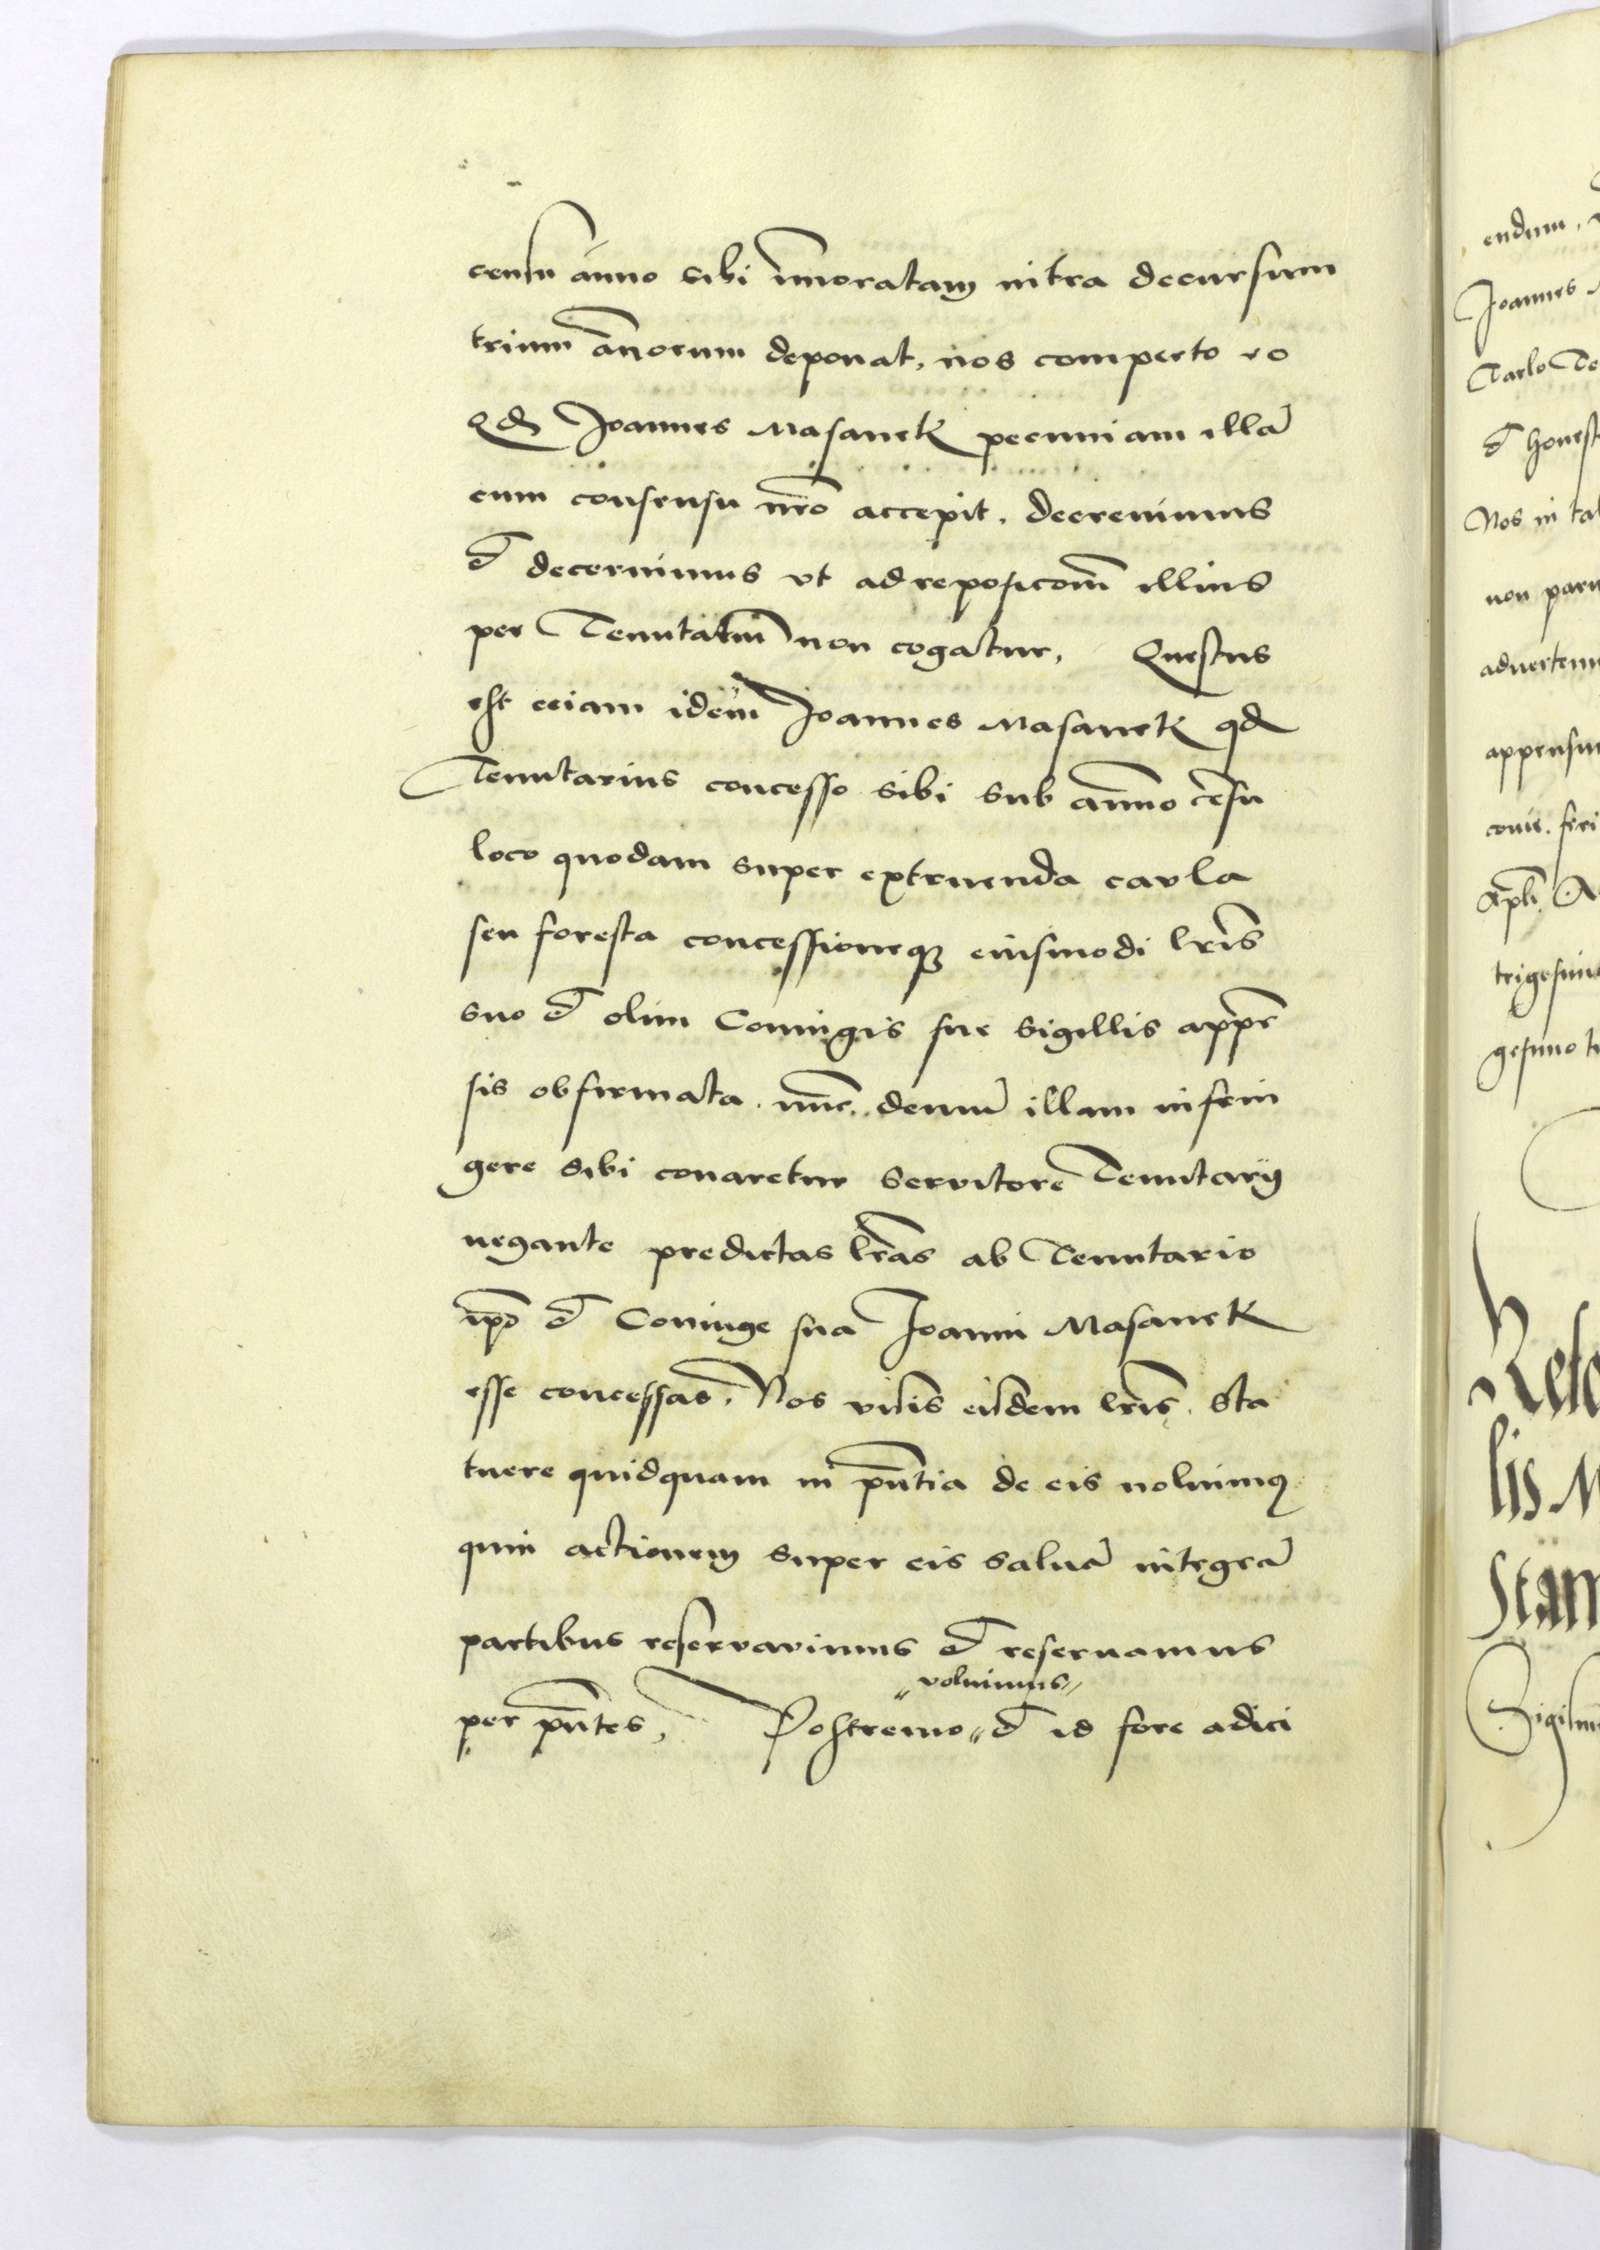 censu anno sibi inoratam intra decursum
trium anorum deponat, nos comperto eo
Qd Joannes Masanek pecuniam illā
cum consensu nro accepit, decrevimus
et decernimus vt ad reposicom illius
per Tenutariū non cogatur, Questus
est eciam idem Joannes Masanek qd
Tenutarius concesso sibi sub anno censu
loco quodam super extruenda caula
seu foresta concessioneq eiusmodi lris
suo et olim Coniugis sue sigillis appē
sis obfirmata. nunc. denuo illam infrin
gere sibi conaretur servitore Tenutarij
negante predictas lras ab Tenutario
ipo et Coniuge sua Joanni Masanek
esse concessas, Nos visis eisdem lris. Sta
tuere quidquam in pntia de eis noluimq
quin actionem super eis saluā integrā
partibus reservavimus et reseruamus
per pntes, Postremo „voluimus„ et id fore adici
endum,
Joannes
Carlo
et honest
Nos in tal
non paru
aduertem
appensum
trigesim
gesimo
lis M